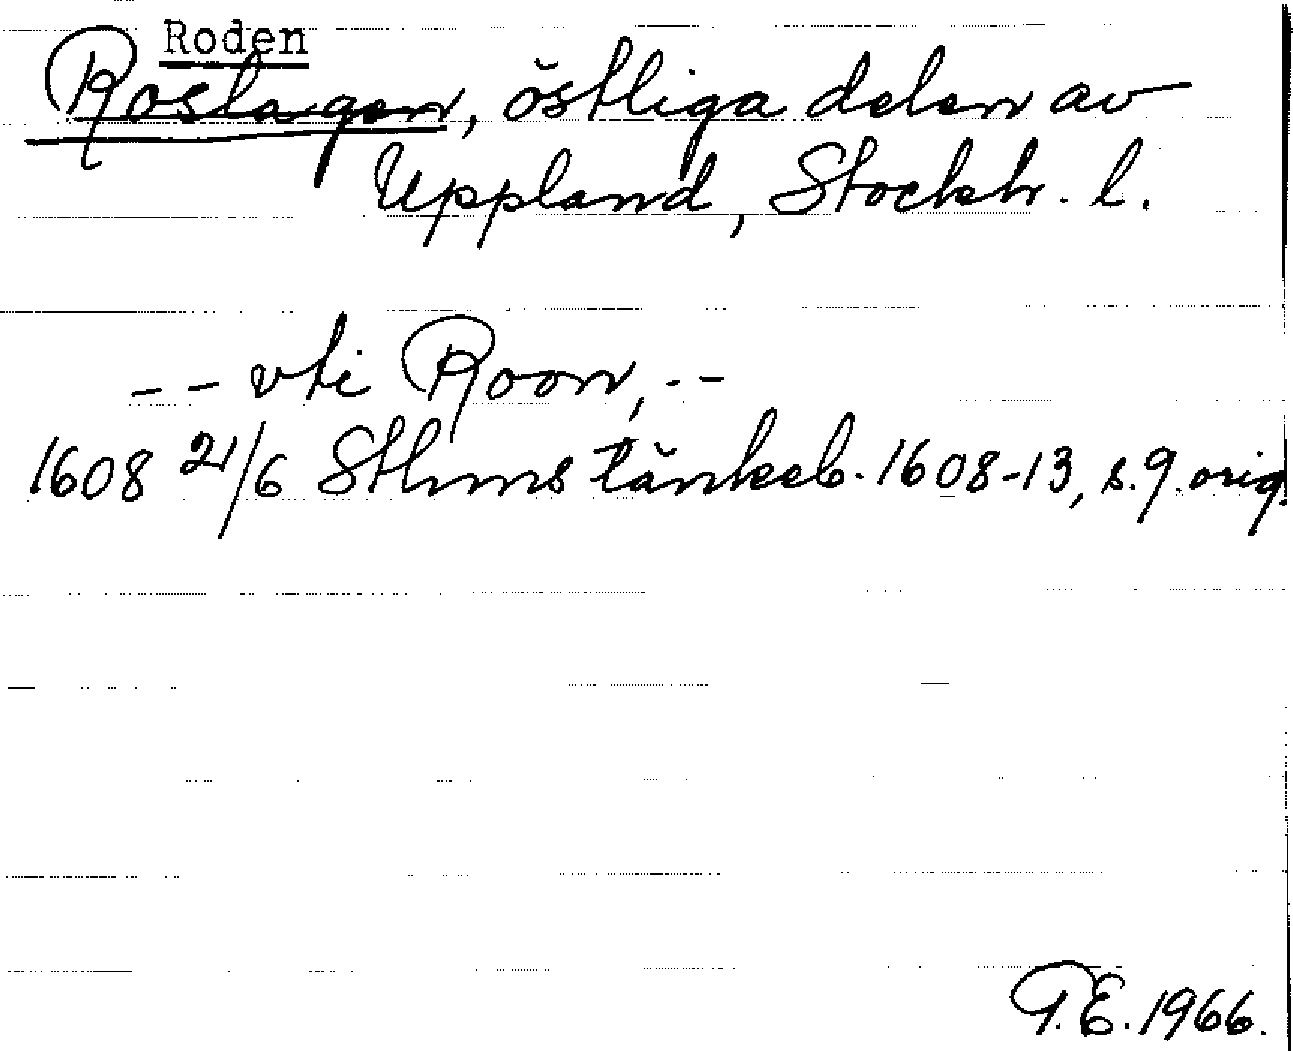 Roden
Roslagen, östliga delen av
Uppland, Stockh. l.
-- vti Roon, --
1608 21/6 Sthms tänkeb. 1608-13, s. 9. orig.
T.E. 1966.